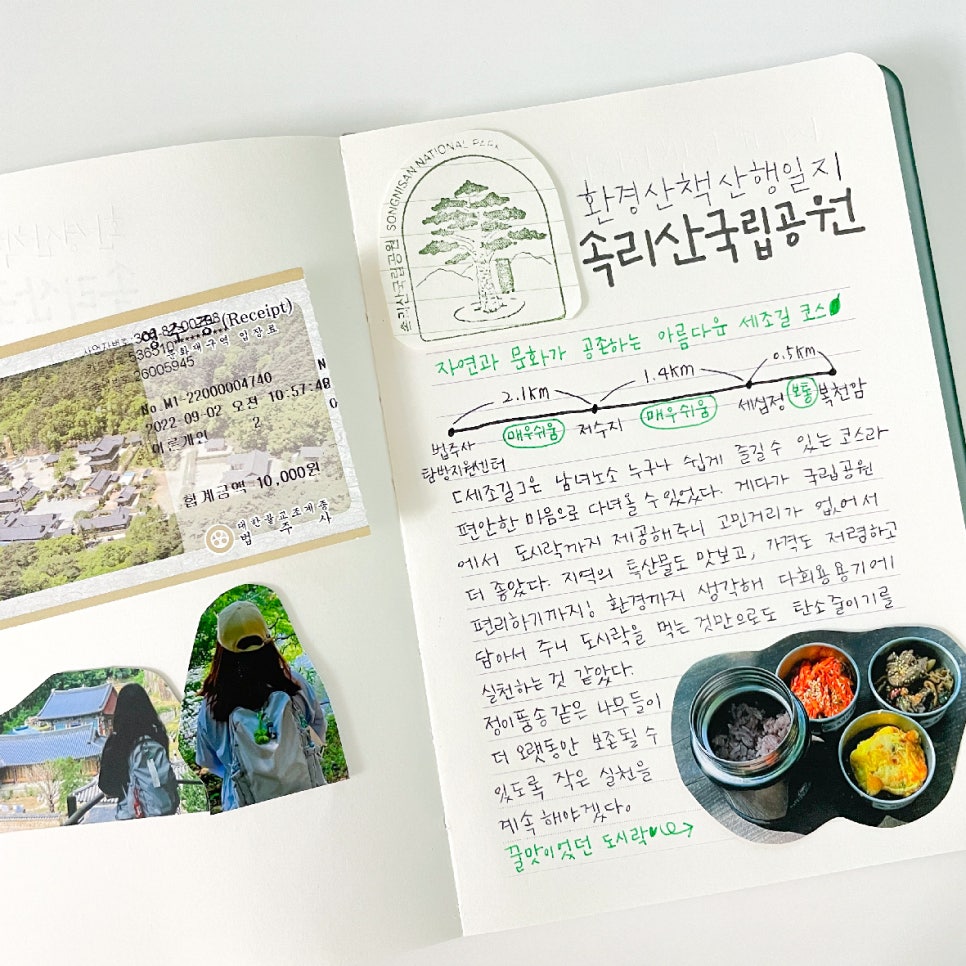 영 수 증 (Receipt)
문화재구역 입장료
26005945
No.M1-22000004740
2022-09-02 오전 10:57:48
어른개인 2
합계금액 10,000원
대한불교조계종
법 주 사
속리산국립공원 SONGNISAN NATIONAL PARK
환경산책 산행일지
속리산국립공원
자연과 문화가 공존하는 아름다운 세조길 코스
2.1km 1.4km 0.5km
법주사 탐방지원센터 매우쉬움 저수지 매우쉬움 세심정 보통 복천암
[세조길]은 남녀노소 누구나 쉽게 즐길 수 있는 코스라
편안한 마음으로 다녀올 수 있었다. 게다가 국립공원
에서 도시락까지 제공해주니 고민거리가 없어서
더 좋았다. 지역의 특산물도 맛보고, 가격도 저렴하고
편리하기까지! 환경까지 생각해 다회용용기에
담아서 주니 도시락을 먹는 것만으로도 탄소줄이기를
실천하는 것 같았다.
정이품송 같은 나무들이
더 오랫동안 보존될 수
있도록 작은 실천을
계속 해야겠다.
꿀맛이었던 도시락